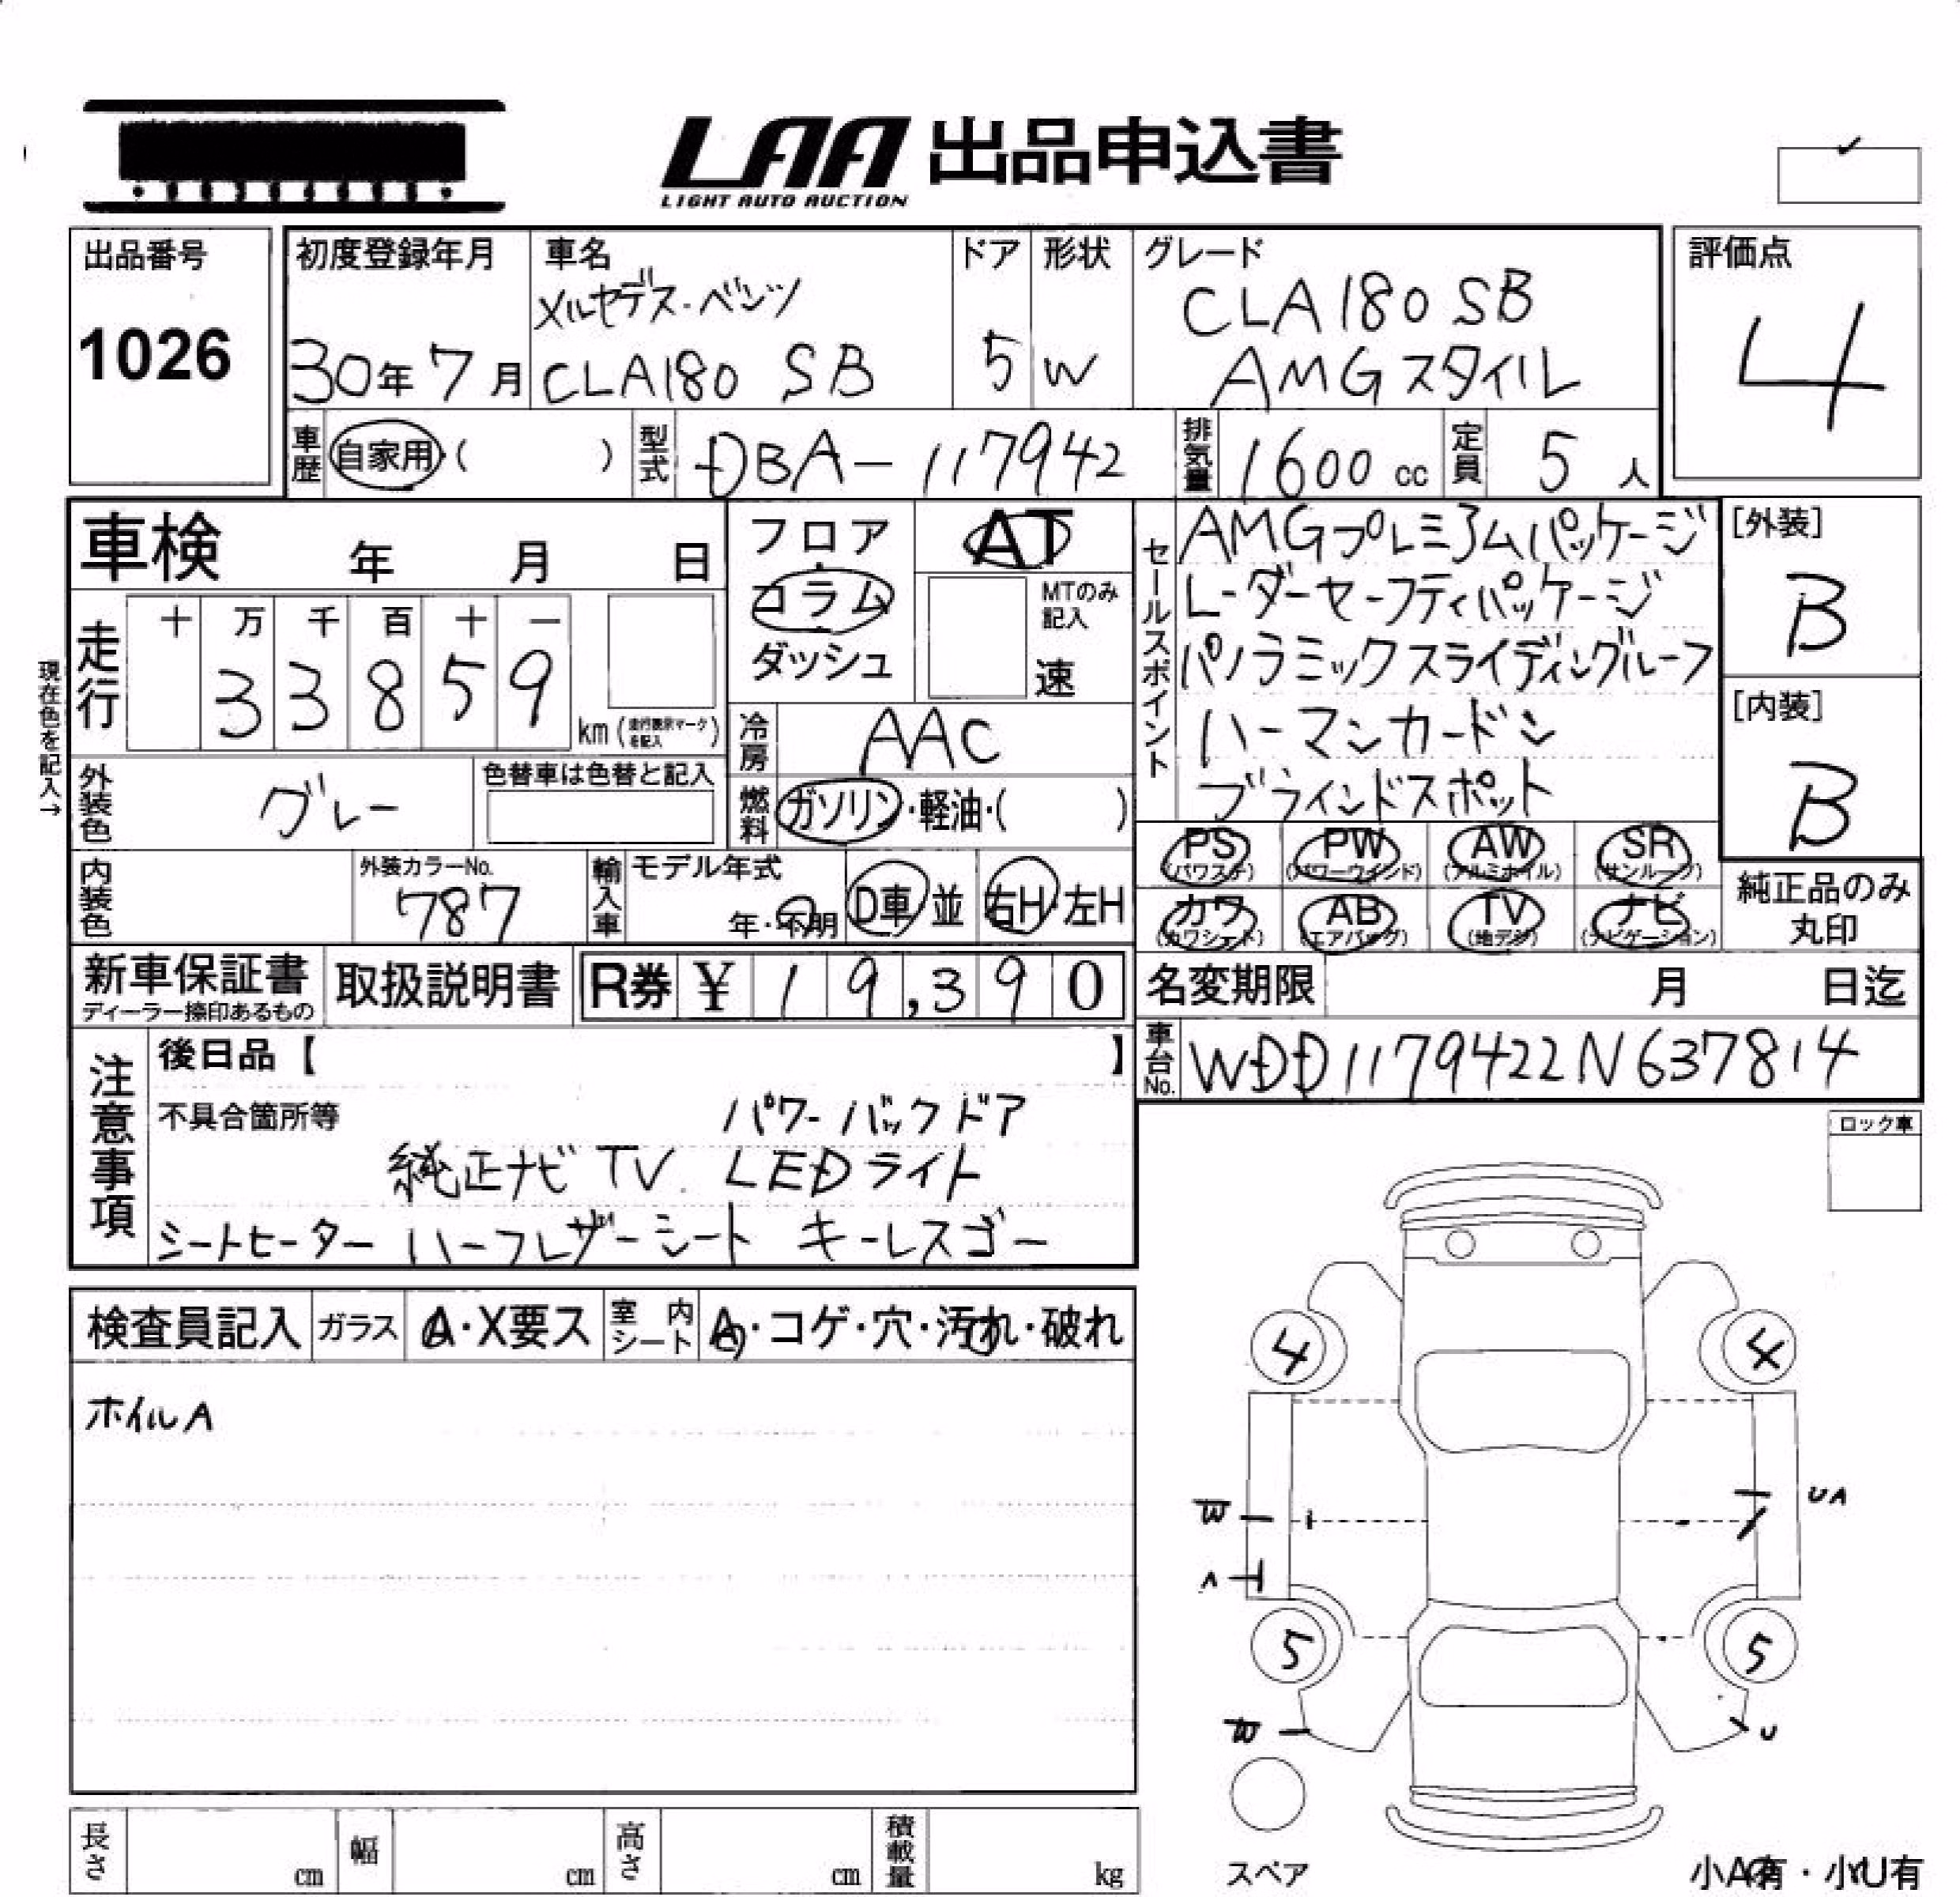 LAA 出品申込書
LIGHT AUTO AUCTION
出品番号
1026
初度登録年月
30年7月
車名
メルセデス・ベンツ
CLA180 SB
ドア
5
形状
W
グレード
CLA180 SB
AMGスタイル
評価点
4
車歴 自家用・( )
型式 DBA-117942
排気量 1600 cc
定員 5 人
車検 年 月 日
フロア
コラム
ダッシュ
AT
MTのみ
記入
速
セールスポイント
AMGプレミアムパッケージ
レーダーセーフティパッケージ
パノラミックスライディングルーフ
ハーマンカードン
ブラインドスポット
[外装]
B
[内装]
B
現在色を記入→
走行
十 万 千 百 十 一
3 3 8 5 9
km (走行表示マークを記入)
冷房 AAC
外装色 グレー
色替車は色替と記入
燃料 ガソリン・軽油・( )
内装色
外装カラーNo.
787
輸入車
モデル年式
年・不明
D車 並
右H 左H
PS (パワステ)
PW (パワーウインド)
AW (アルミホイル)
SR (サンルーフ)
カワ (カワシート)
AB (エアバッグ)
TV (地デジ)
ナビ (ナビゲーション)
純正品のみ
丸印
新車保証書
ディーラー捺印あるもの
取扱説明書
R券 ¥ 19,390
名変期限 月 日迄
車台No. WDD1179422N637814
注意事項
後日品【 】
不具合箇所等
パワーバックドア
純正ナビ TV. LEDライト
シートヒーター ハーフレザーシート キーレスゴー
ロック車
検査員記入
ガラス A・X要ス
室内シート A・コゲ・穴・汚れ・破れ
ホイルA
4
4
W
UA
A
5
5
W
U
スペア
小A有・小U有
長さ cm
幅 cm
高さ cm
積載量 kg